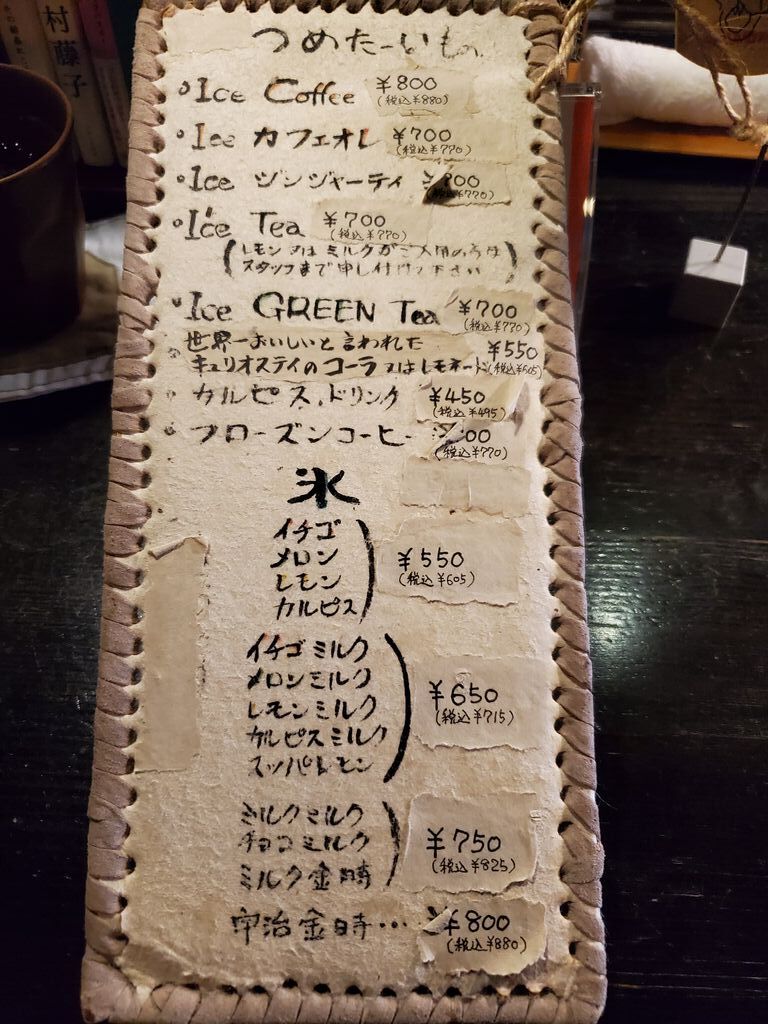 村藤子
つめたーいもの
・Ice Coffee ¥800
(税込¥880)
・Ice カフェオレ ¥700
(税込¥770)
・Ice ジンジャーティ 00
¥770)
・Ice Tea ¥700
(税込¥770)
(レモン又はミルクがご入用の方は
スタッフまで申し付け下さい)
・Ice GREEN Tea ¥700
(税込¥770)
・世界一おいしいと言われた ¥550
キュリオステイのコーラ又はレモネード (税込¥605)
・カルピス.ドリンク ¥450
(税込¥495)
・フローズンコーヒー 00
(税込¥770)
氷
イチゴ
メロン
レモン
カルピス
¥550
(税込¥605)
イチゴミルク
メロンミルク
レモンミルク
カルピスミルク
スッパレモン
¥650
(税込¥715)
ミルクミルク
チョコミルク
ミルク金時
¥750
(税込¥825)
宇治金時… ¥800
(税込¥880)